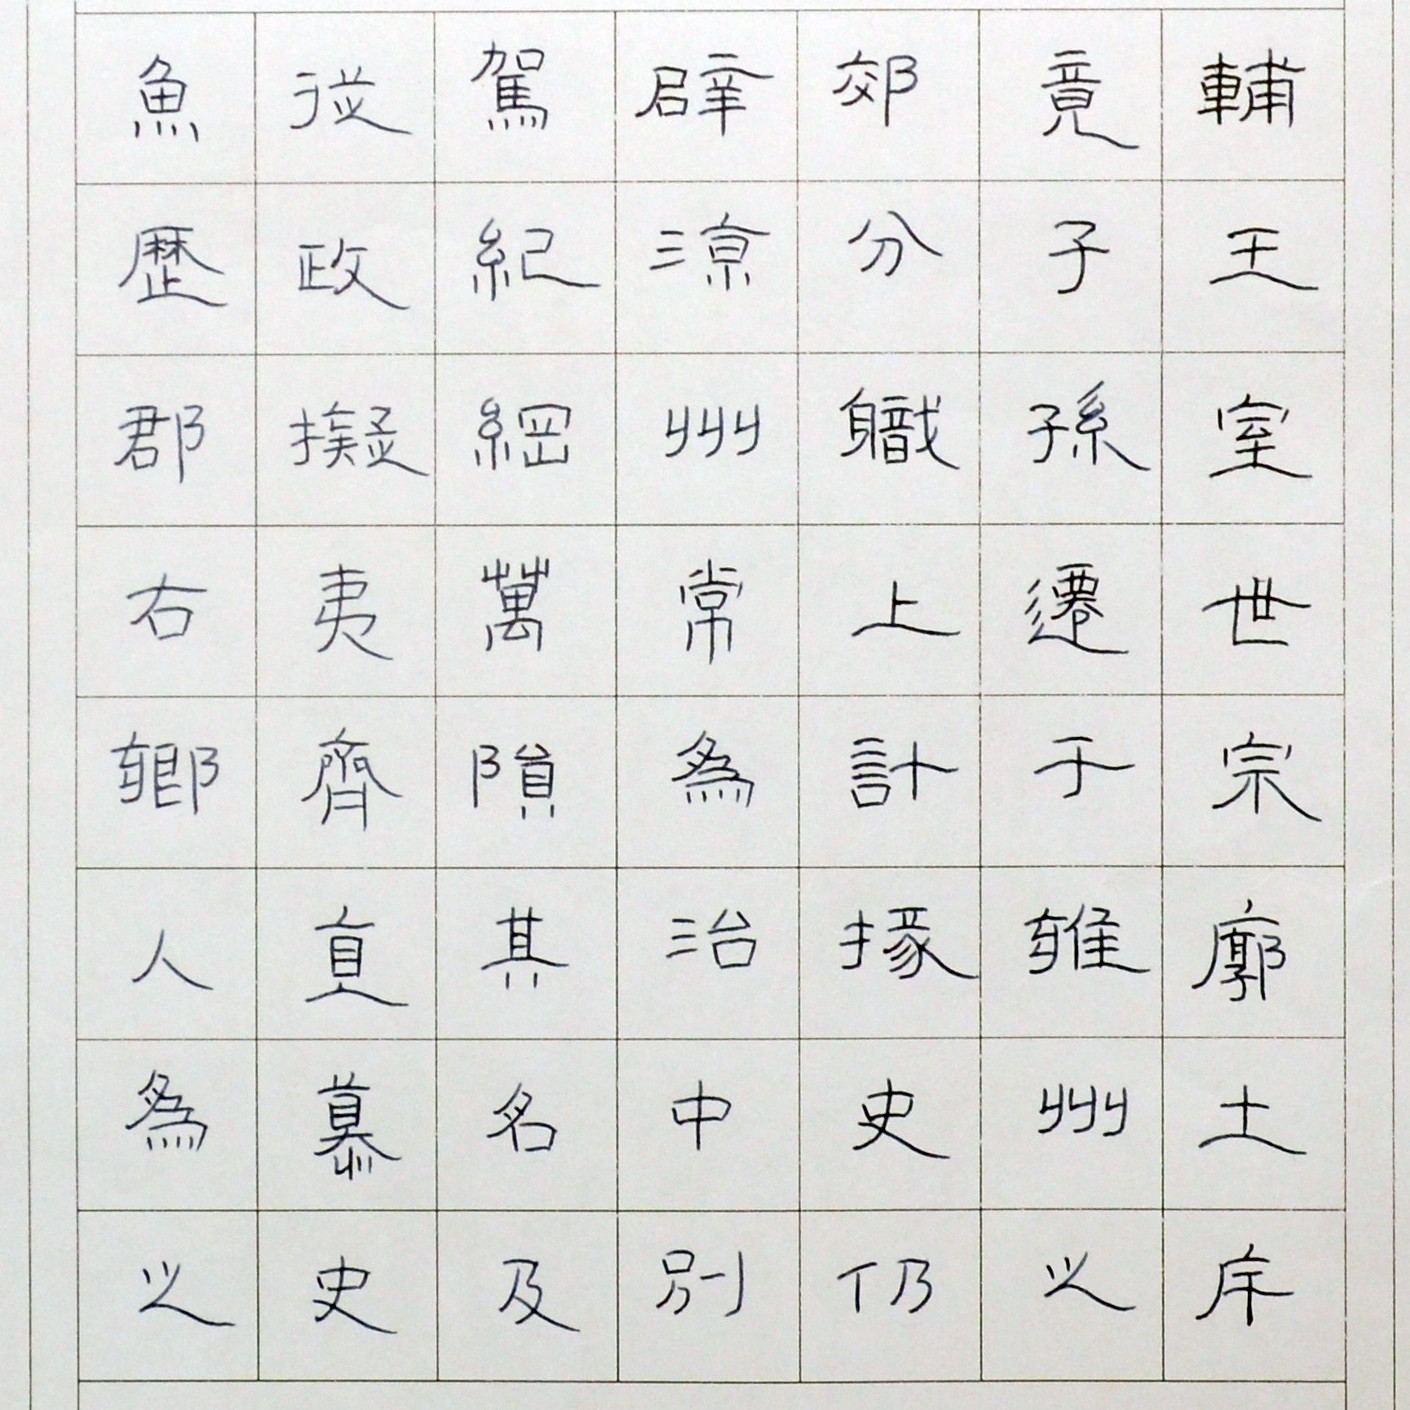 輔王室世宗廓土斥
竟子孫遷于雍州之
郊分職上計掾史仍
辟涼州常為治中別
駕紀綱萬隕其名及
從政擬夷齊直慕史
魚歷郡右鄉人為之